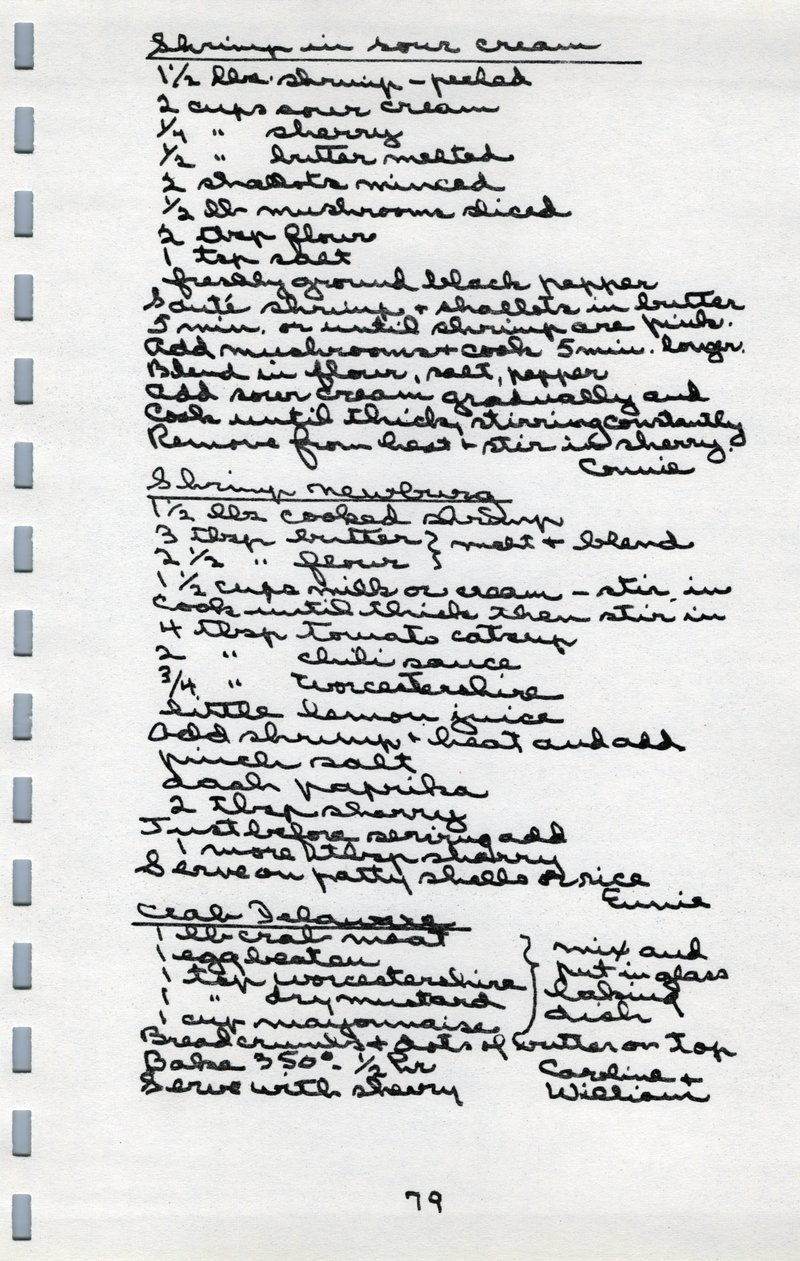 Shrimp in sour cream
1 1/2 lbs. shrimp - peeled
2 cups sour cream
1/4 " sherry
1/2 " butter melted
2 shallots minced
1/2 lb mushrooms sliced
2 tbsp flour
1 tsp salt
freshly ground black pepper
Sauté shrimp + shallots in butter
5 min. or until shrimp are pink.
Add mushrooms + cook 5 min. longer.
Blend in flour, salt, pepper
Add sour cream gradually and
Cook until thick, stirring constantly
Remove from heat + stir in sherry.
Connie
Shrimp Newburg
1 1/2 lbs cooked shrimp
3 tbsp butter } melt + blend
2 1/2 " flour }
1 1/2 cups milk or cream - stir in
Cook until thick then stir in
4 tbsp tomato catsup
2 " chili sauce
3/4 " Worcestershire
little lemon juice
Add shrimp + heat and add
pinch salt
dash paprika
2 tbsp sherry
Just before serving add
1 more tbsp sherry
Serve on patty shells or rice
Eunie
Crab Delaware
1 lb crab meat } mix and
1 egg beaten put in glass
1 tsp worcestershire baking
1 " dry mustard dish
1 cup mayonnaise
Bread crumbs + dots of butter on top
Bake 350° - 1/2 hr
Serve with sherry
Caroline +
William
79